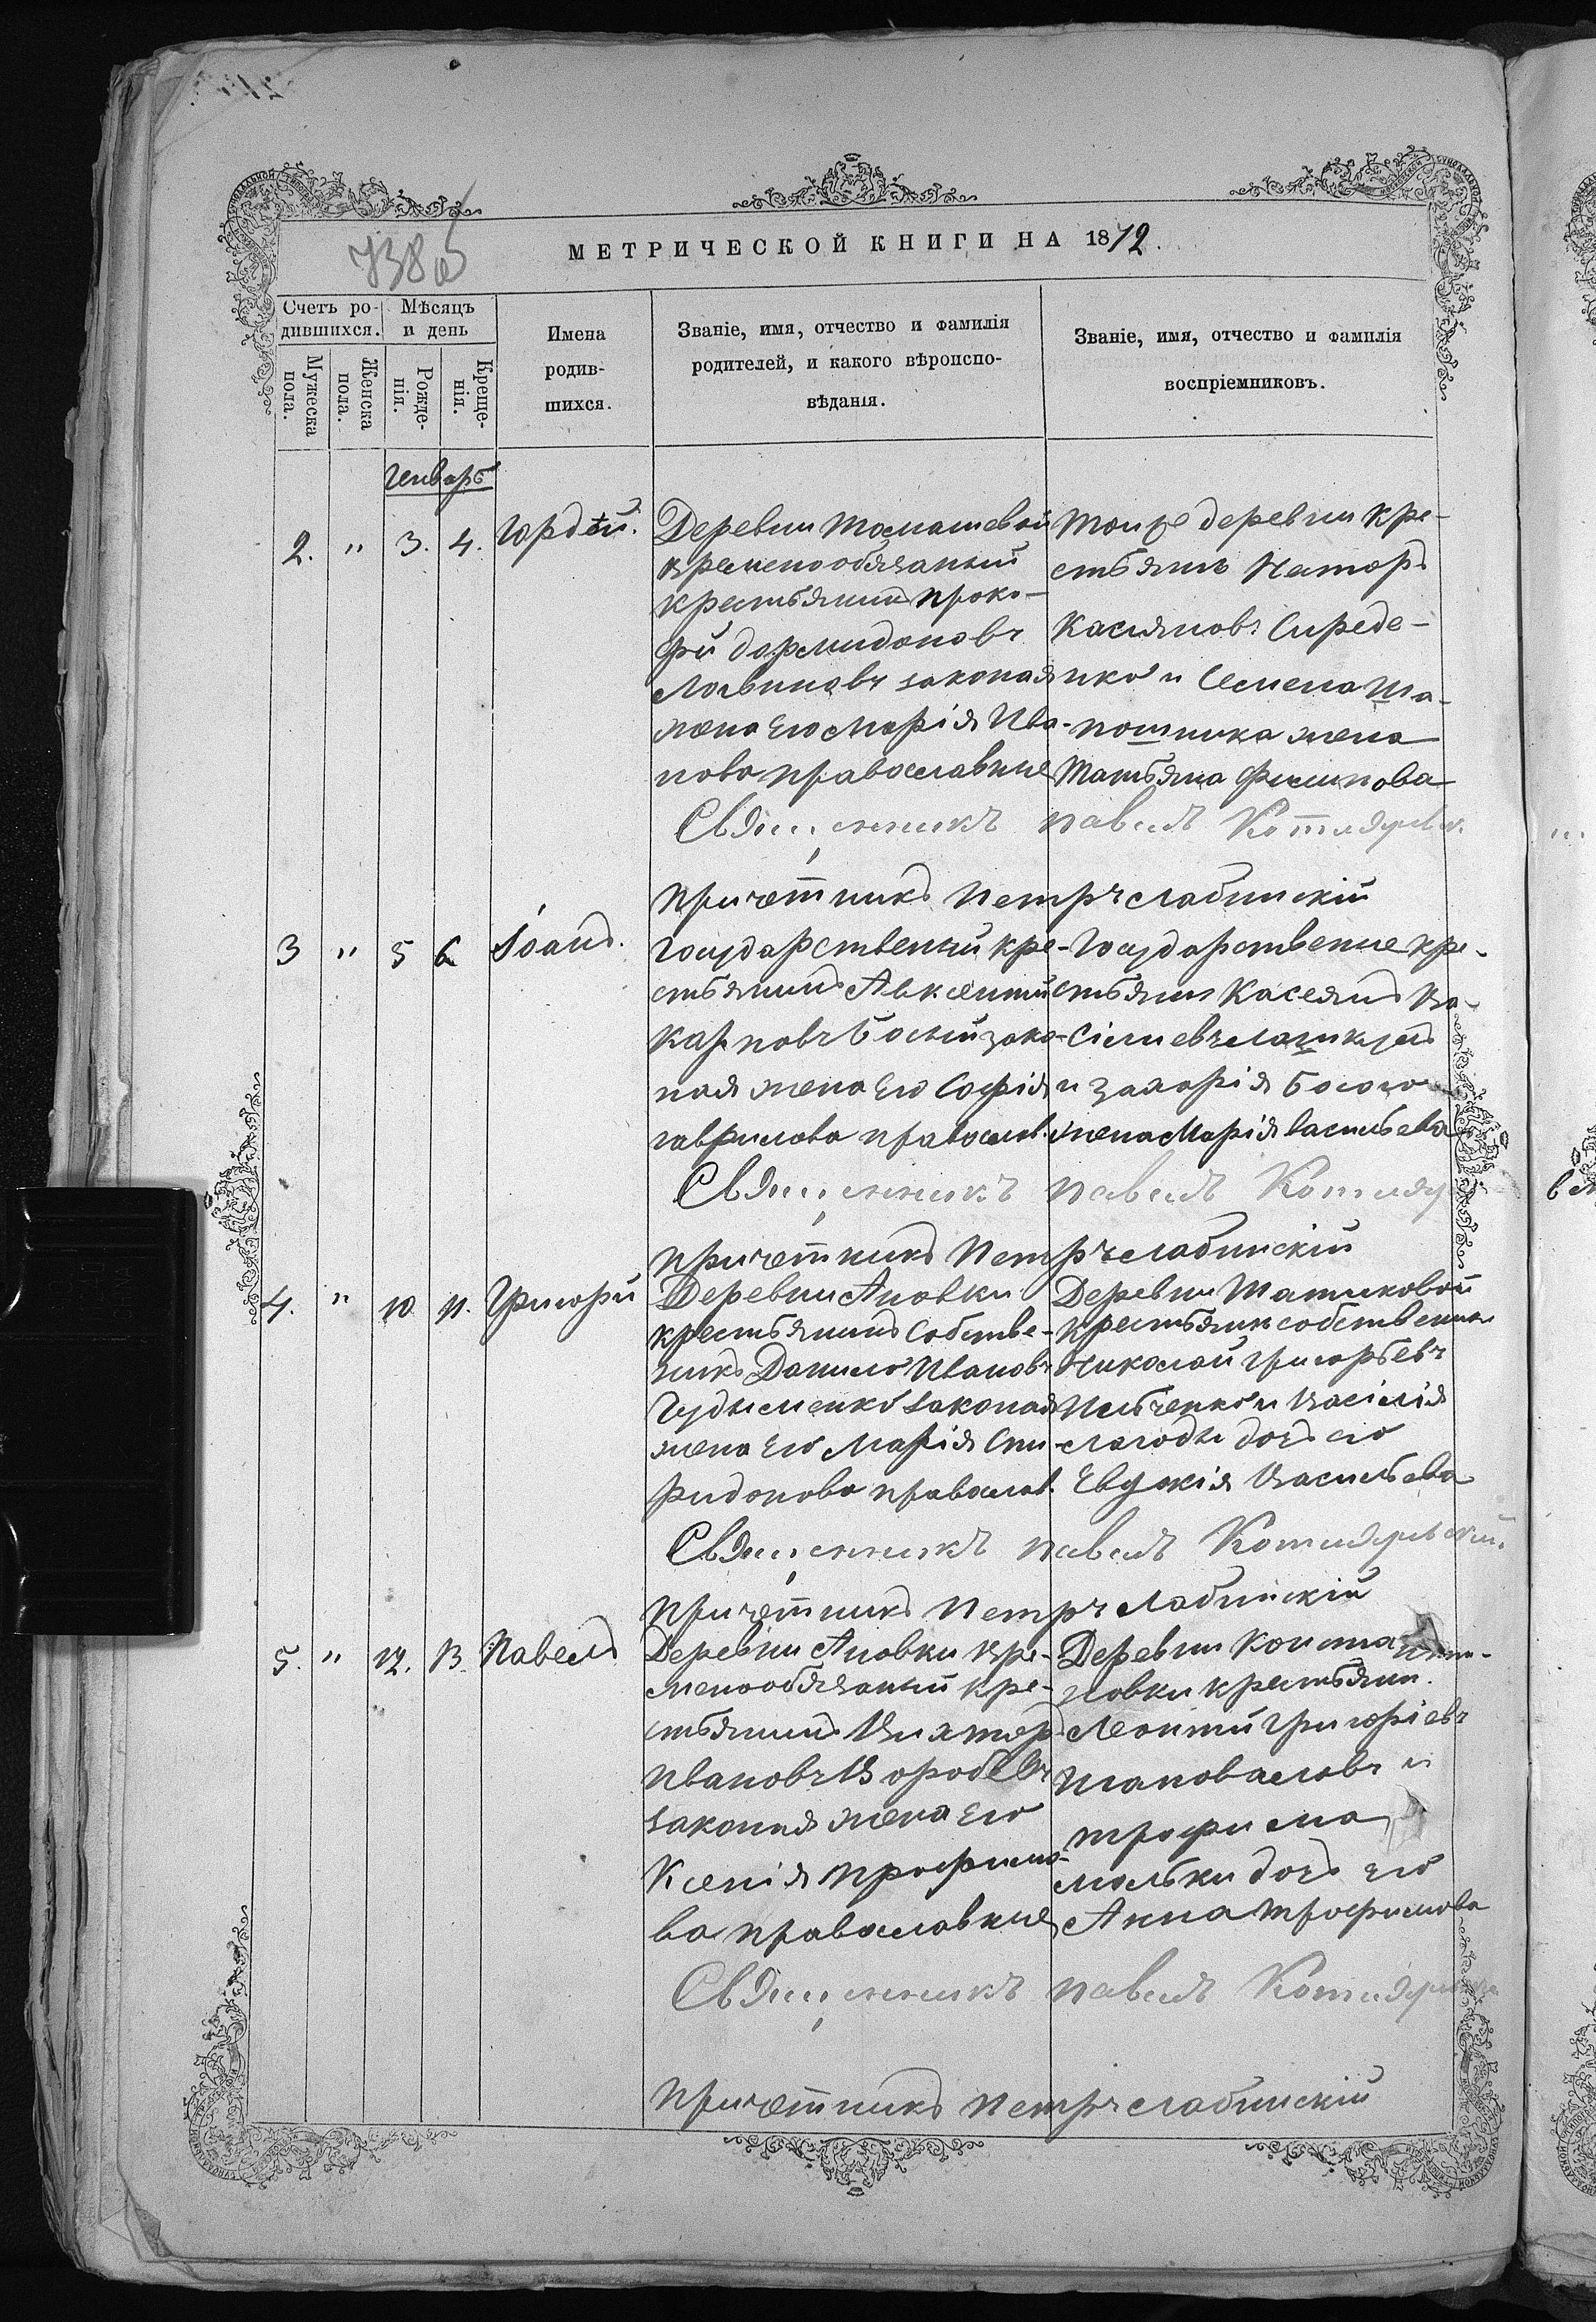 738 об
МЕТРИЧЕСКОЙ КНИГИ НА 1872.
Счетъ родившихся.
Мѣсяцъ и день
Мужеска пола.
Женска пола.
Рожденія.
Крещенія.
Имена
родив-
шихся.
Званіе, имя, отчество и фамилія
родителей, и какого вѣроиспо-
вѣданія.
Званіе, имя, отчество и фамилія
воспріемниковъ.
Генварь
2. " 3. 4. Гордѣй.
Деревни Томашевой
временообязаный
крестьянинъ Проко-
фій Дормидоновъ
Логвиновъ законая
жена Его Марія Ива-
нова православные
Той же деревни кре-
стьянъ Нестор
Касіяновъ Середе-
нко и Семена Ша-
пошника жена
Татьяна Филипова
Священникъ Павелъ Котляревск.
Причетникъ Петръ Слабинскій
3 " 5 6 Іоанъ.
Государственый кре-
стьянинъ Авксентій
Карповъ Босый зако-
ная жена Его Софія
Гаврилова правосл.
Государственые кре-
стьяне Касеянъ Ва-
сіліевъ
и Захарія Босого
жена Марія Васильева
Священникъ Павелъ Котляр
Причетникъ Петръ Слабинскій
4. " 10. 11. Григорій
Деревни Ановки
крестьянинъ собстве-
никъ Данило Ивановъ
законая
жена Его Марія Спи-
ридонова правосл.
Деревни
крестьяне собственики
Николай Григорьевъ
Ильченко и Васілія
Лагоды дочь его
Евдокія Васильева
Священникъ Павелъ Котляревский.
Причетникъ Петръ Слабинскій
5. " 12. 13. Павелъ
Деревни Ановки вре-
менообязаный кре-
стьянинъ Вихтор
Ивановъ Воробевъ
законая жена Его
Ксенія Трофимо-
ва православные
Деревни Константи-
новки крестьяни.
Леонтій Григоріевъ
Шаповаловъ и
Трофима
дочь его
Анна Трофимова
Священникъ Павелъ Котляревск
Причетникъ Петръ Слабинскій